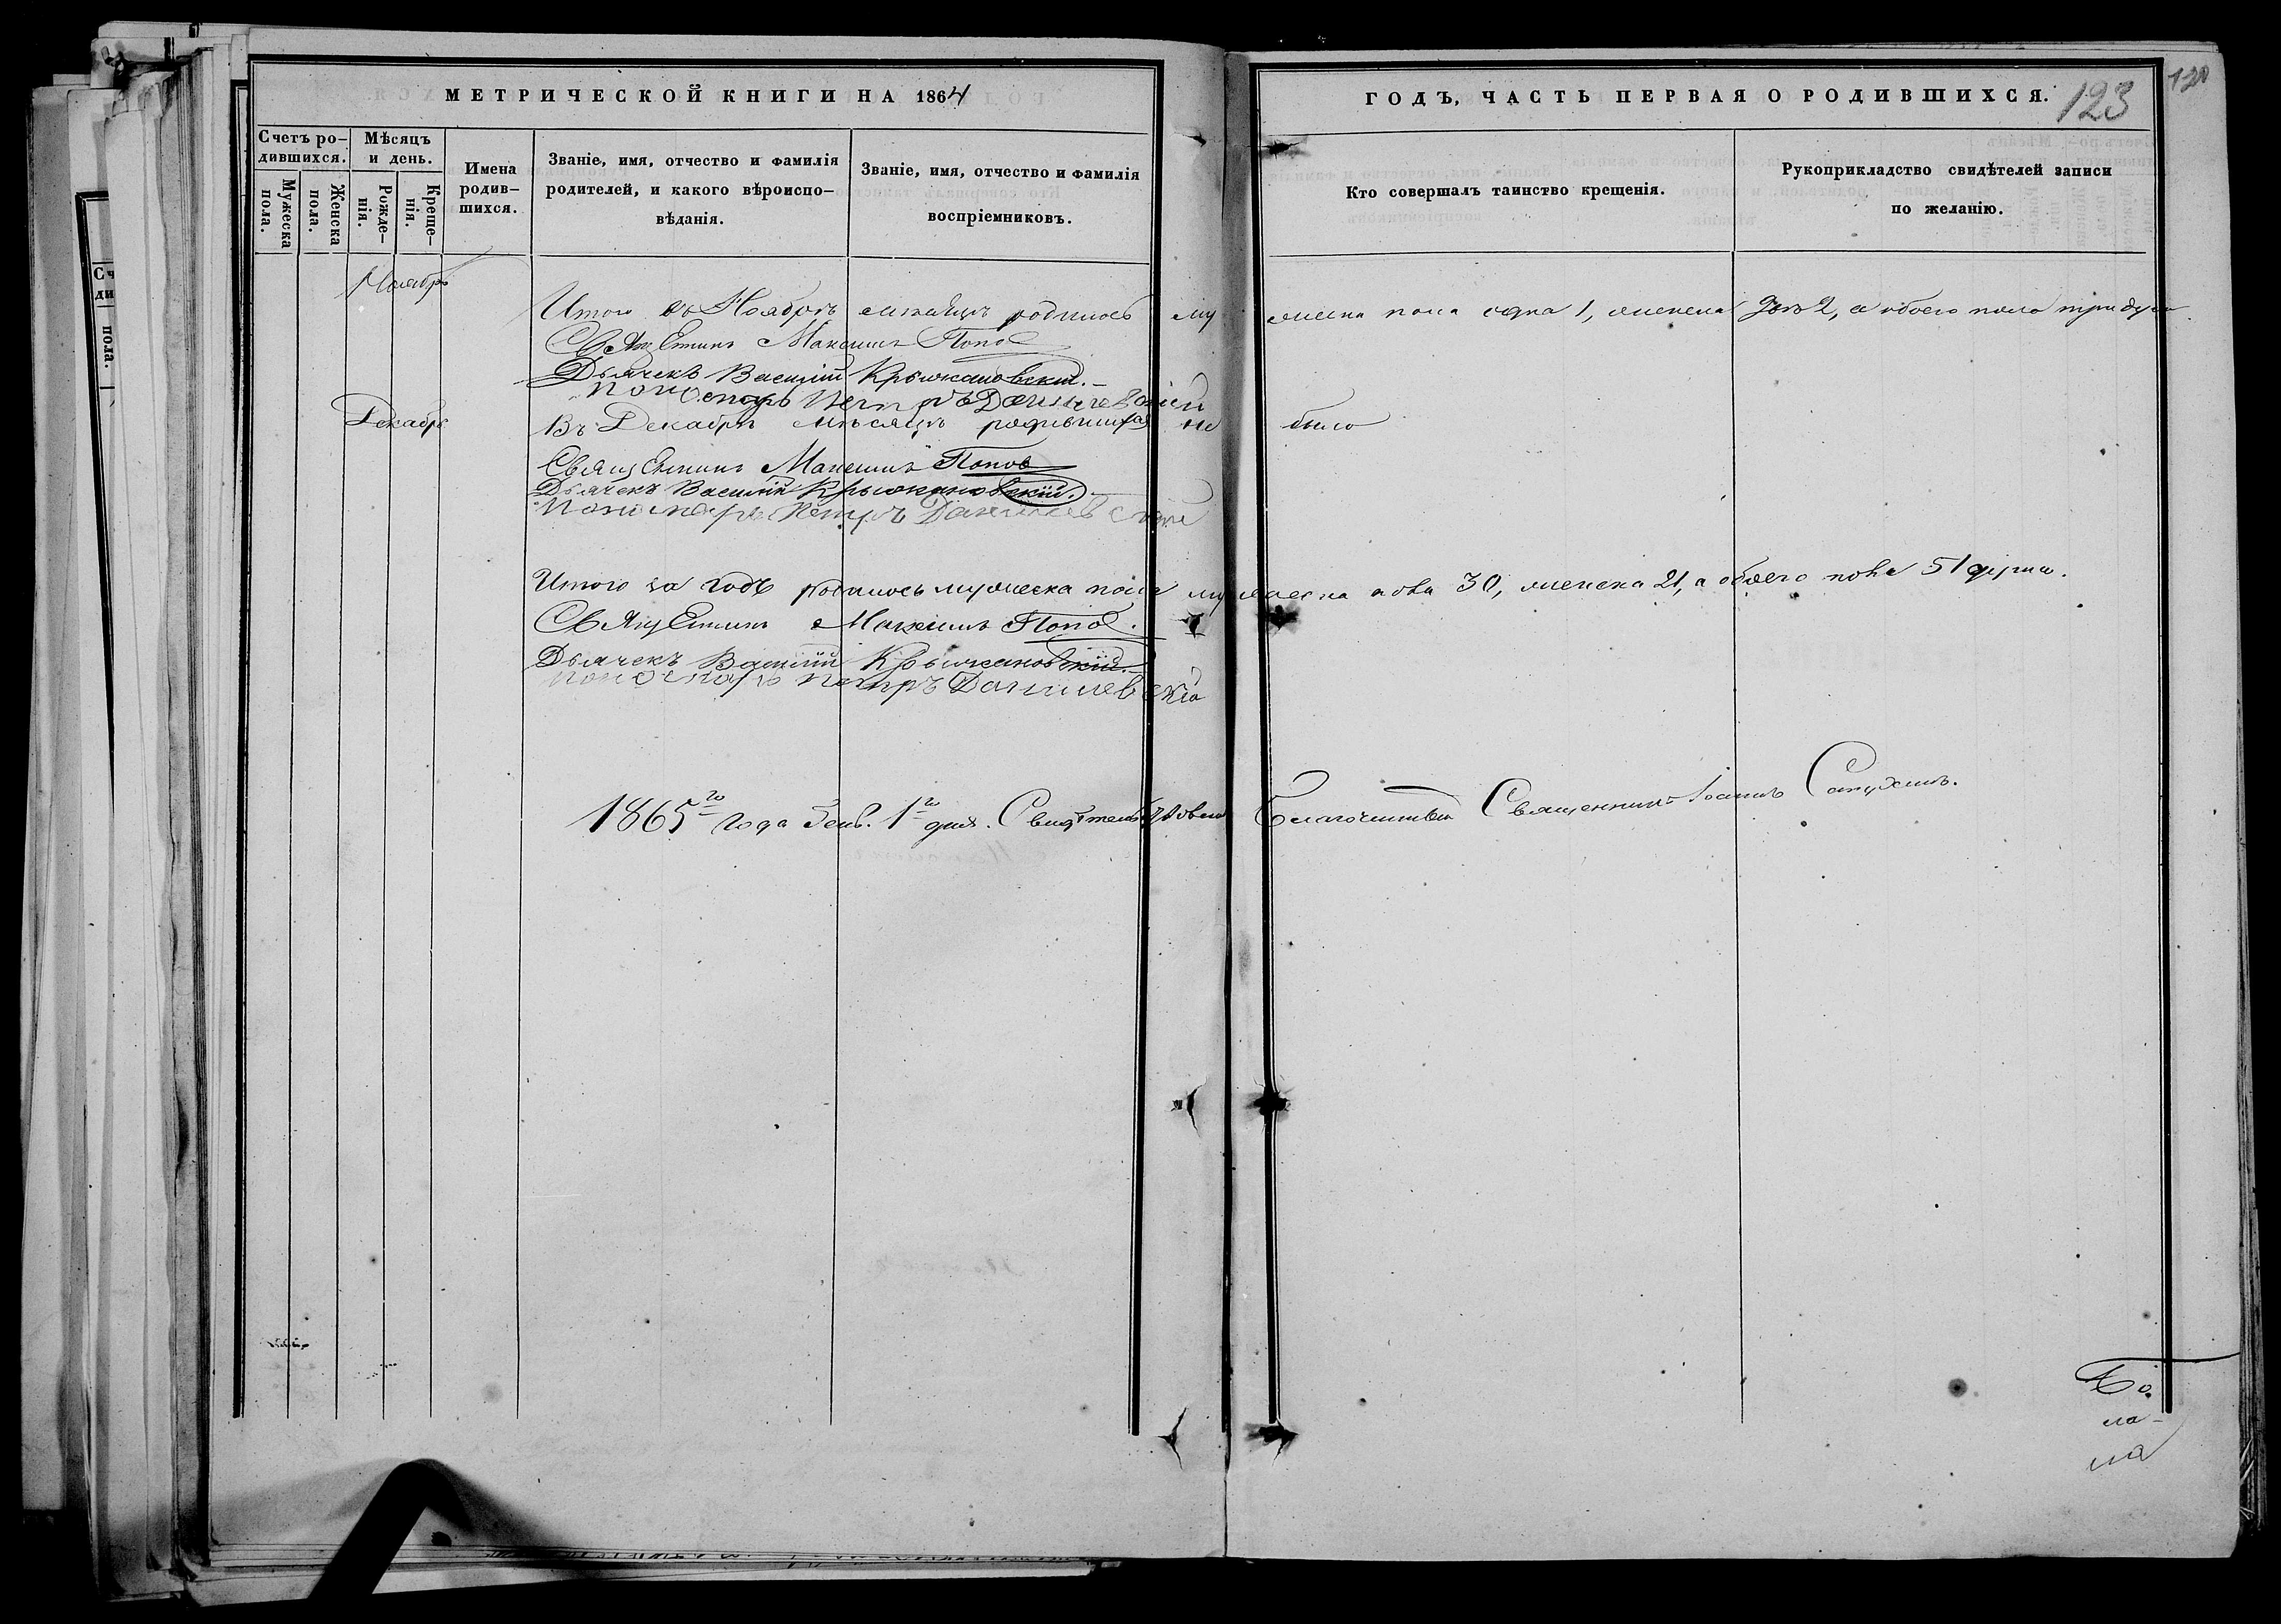 МЕТРИЧЕСКОЙ КНИГИ НА 1864
ГОДЪ, ЧАСТЬ ПЕРВАЯ О РОДИВШИХСЯ.
123
120
Счетъ ро-
дившихся.
Мужеска
пола.
Женска
пола.
Мѣсяцъ
и день.
Рожде-
нія.
Креще-
нія.
Имена
родив-
шихся.
Званіе, имя, отчество и фамилія
родителей, и какого вѣроиспо-
вѣданія.
Званіе, имя, отчество и фамилія
воспріемниковъ.
Кто совершалъ таинство крещенія.
Рукоприкладство свидѣтелей записи
по желанію.
Ноябрь
Итого въ Ноябрѣ мѣсяцѣ родилось мужеска пола одна 1, женска двѣ 2, а обоего пола три души.
Священникъ Максимъ Попов
Дьячекъ Василій Крыжановскій.
Пономарь Петръ Данилевскій
Декабрь
Въ Декабрѣ мѣсяцѣ родившихся не было
Священникъ Максимъ Попов
Дьячекъ Василій Крыжановскій.
Пономарь Петръ Данилевскій
Итого за годъ родилось мужеска пола мужеска пола 30, женска 21, а обоего пола 51 душа.
Священникъ Максимъ Попов.
Дьячекъ Василій Крыжановскій.
Пономарь Петръ Данилевскій
1865го года Генв. 1го дня. Свидѣтельствовалъ Благочинный Священникъ Іоаннъ